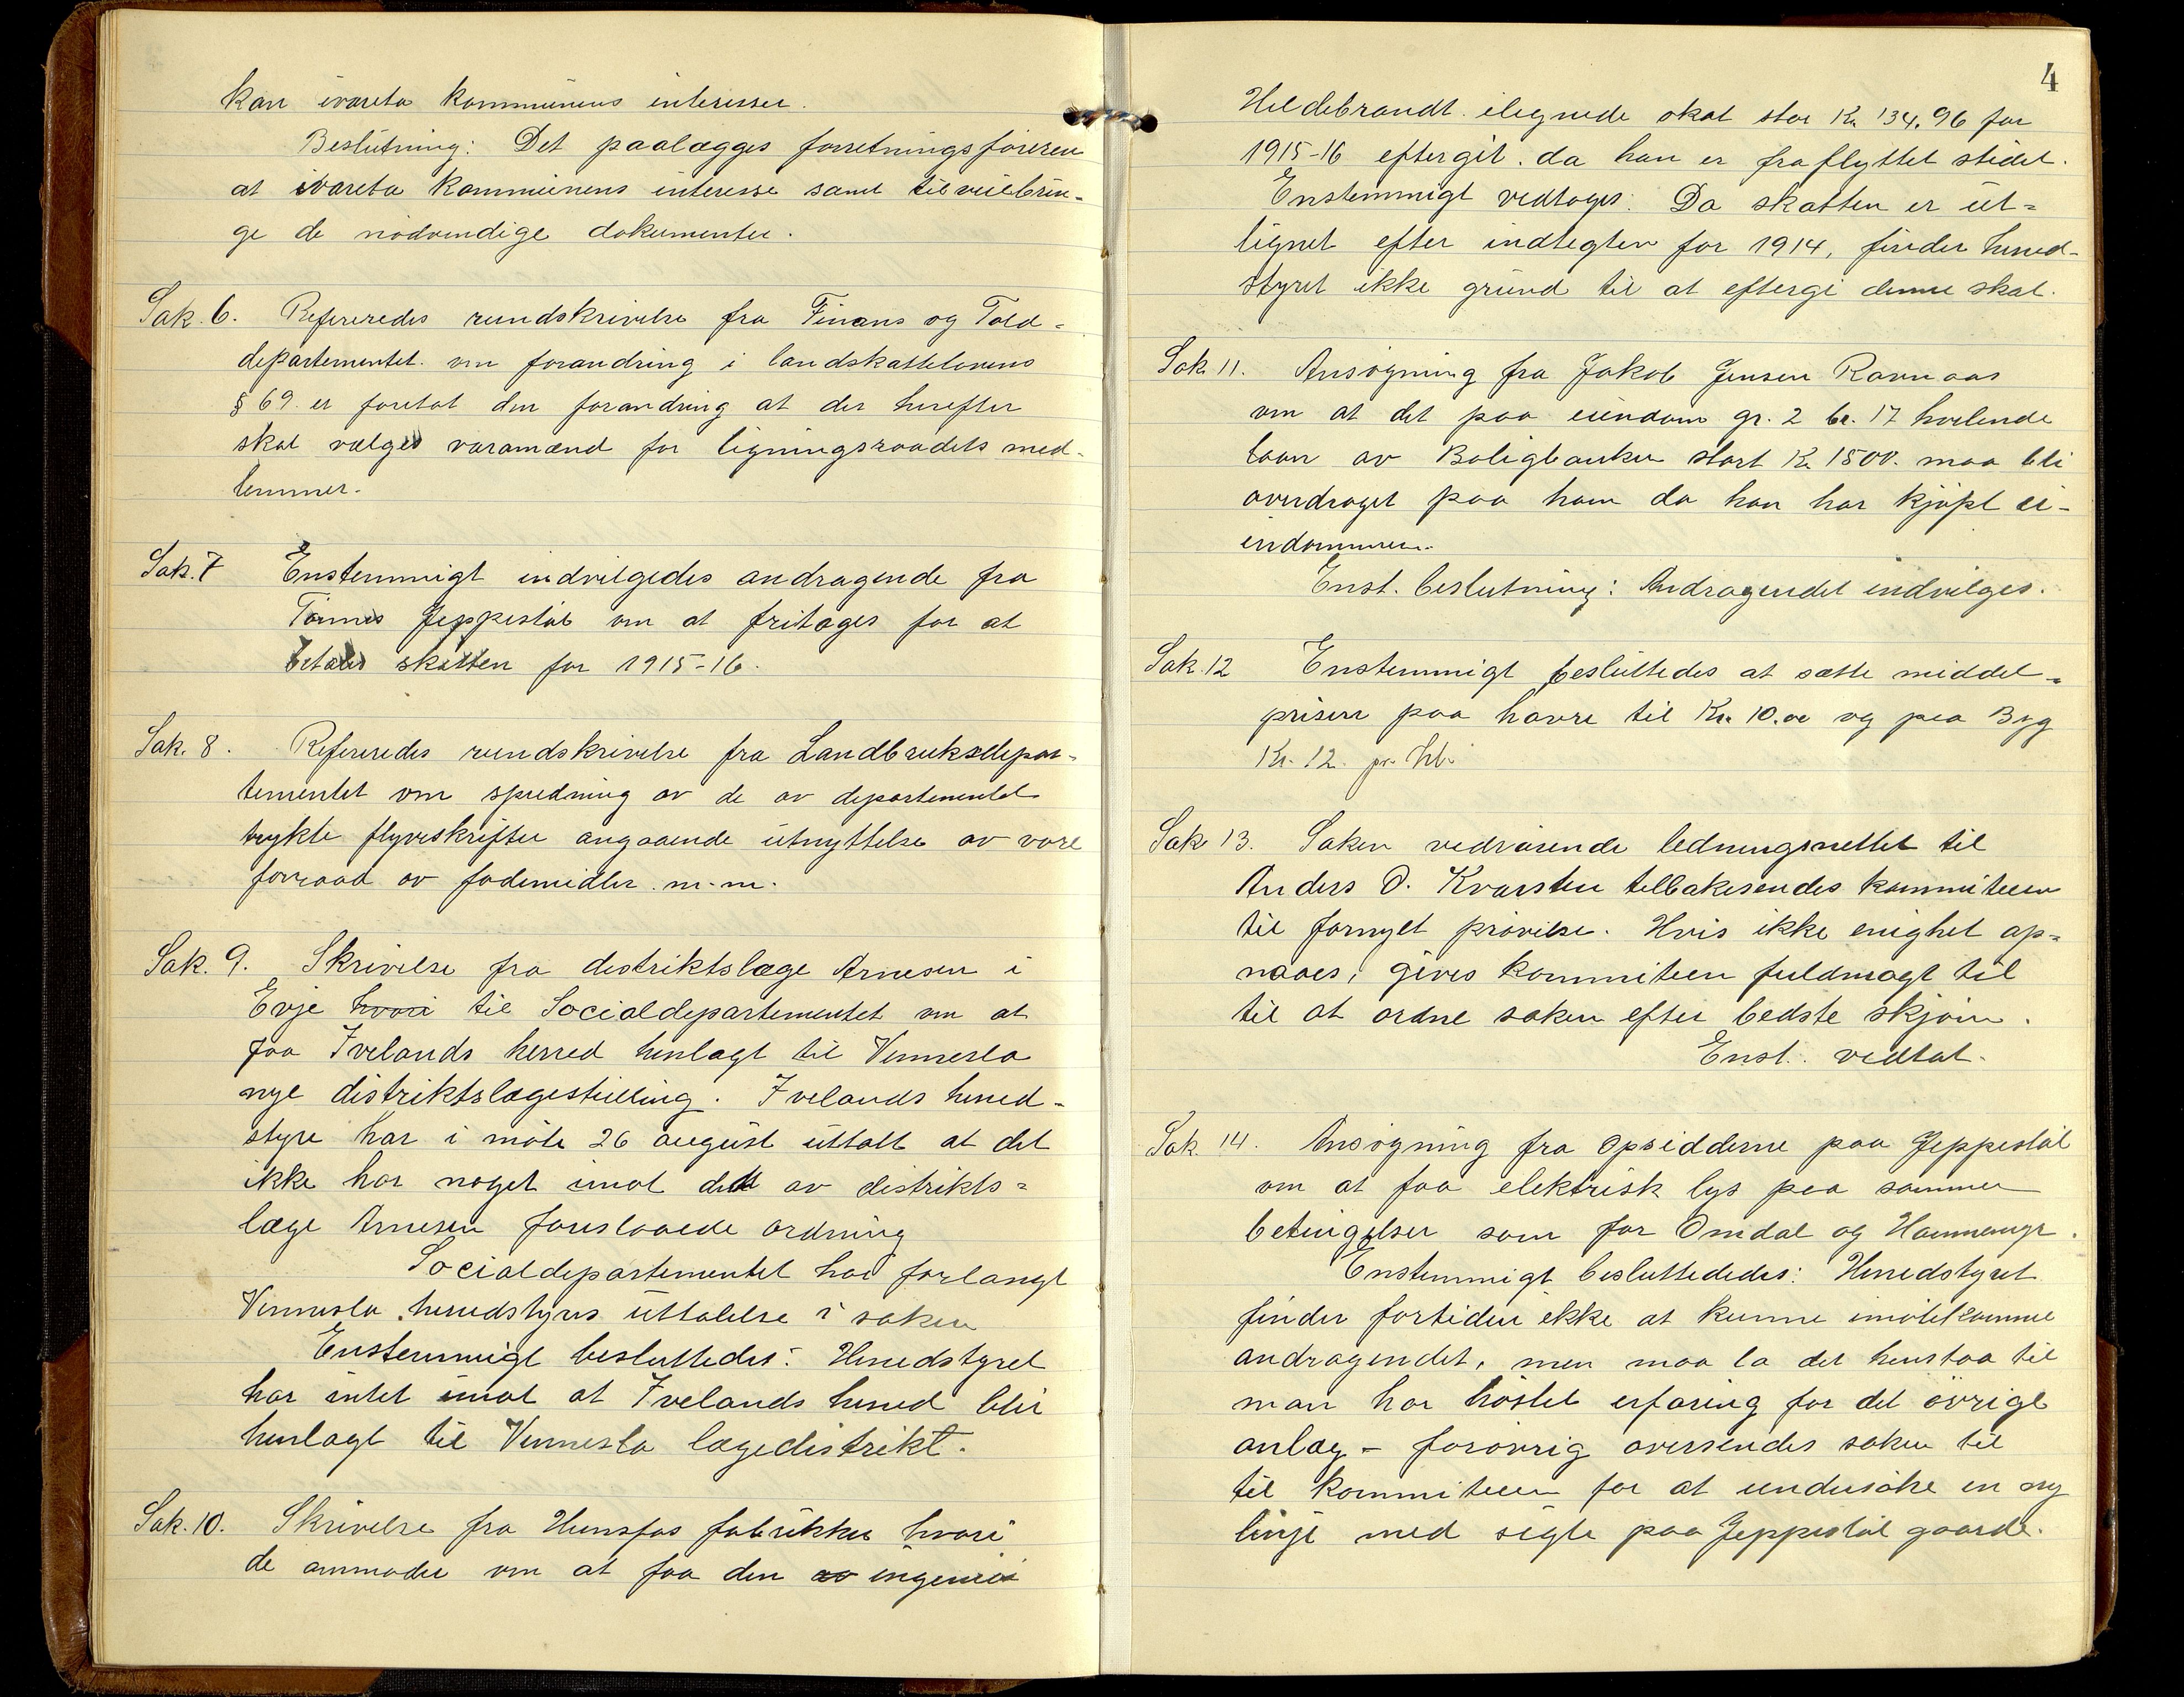 kan ivareta kommunens interesser.
Beslutning: Det paalægges forretningsföreren
at ivareta kommunens interesse samt tilveiebrin-
ge de nödvendige dokumenter.
Sak. 6. Refereredes rundskrivelse fra Finans og Told-
departementet om forandring i landskattelovens
§ 69. er foretat den forandring at der herefter
skal vælges varamænd for ligningsraadets med-
lemmer.
Sak. 7 Enstemmigt indvilgedes andragende fra
Tönnes Jeppestöl om at fritages for at
betale skatten for 1915-16.
Sak. 8. Refereredes rundskrivelse fra Landbruksdepar-
tementet om spredning av de av departementet
trykte flyveskrifter angaaende utnyttelse av vore
forraad av fødemidler m.m.
Sak. 9. Skrivelse fra distriktslæge Arnesen i
Evje hvori til Socialdepartementet om at
faa Ivelands herred henlagt til Vennesla
nye distriktslægestilling. Ivelands herred-
styre har i möte 26 august uttalt at det
ikke har noget imot det av distrikts-
læge Arnesen foreslaaede ordning
Socialdepartementet har forlangt
Vennesla herredstyres uttalelse i saken
Enstemmigt besluttedes: Herredstyret
har intet imot at Ivelands herred blir
henlagt til Vennesla lægedistrikt.
Sak. 10. Skrivelse fra Hunsfos fabrikker hvori
de anmoder om at faa den av ingeniör
4
Hildebrandt ilignede skat stor Kr. 134.96 for
1915-16 eftergit. da han er fraflyttet stedet.
Enstemmigt vedtoges: Da skatten er ut-
lignet efter indtegten for 1914, finder herred-
styret ikke grund til at eftergi denne skat.
Sak 11. Ansögning fra Jakob Jensen Ravnaas
om at det paa eiendom gr. 2 br. 17 hvilende
laan av Boligbanken stort Kr 1500. maa bli
overdraget paa ham da han har kjöpt ei-
endommen.
Enst. beslutning: Andragendet indvilges.
Sak. 12 Enstemmigt besluttedes at sætte middel-
prisen paa havre til Kr. 10.00 og paa Byg
Kr. 12 pr. hl.
Sak 13. Saken vedrörende ledningsnettet til
Anders O. Kvarsten tilbakesendes kommiteen
til fornyet prövelse. Hvis ikke enighet op-
naaes, gives kommiteen fuldmagt til
til at ordne saken efter bedste skjön.
Enst. vedtat.
Sak. 14. Ansögning fra opsidderne paa Jeppestöl
om at faa elektrisk lys paa samme
betingelser som for Omdal og Hommenyr.
Enstemmigt besluttededes: Herredstyret
finder fortiden ikke at kunne imötekomme
andragendet, men maa la det henstaa til
man har höstet erfaring for det övrige
anlæg - forövrig oversendes saken til
til kommiteen for at undersöke en ny
linje med sigte paa Jeppestöl gaarde.